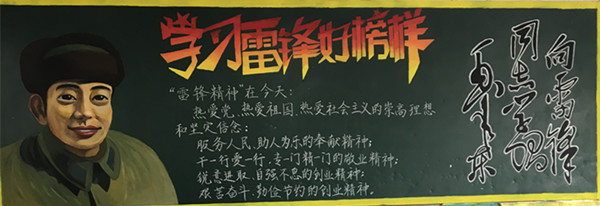 学习雷锋好榜样
“雷锋精神”在今天:
热爱党、热爱祖国、热爱社会主义的崇高理想
和坚定信念;
服务人民、助人为乐的奉献精神;
干一行爱一行、专一门精一门的敬业精神;
锐意进取、自强不息的创业精神;
艰苦奋斗、勤俭节约的创业精神。
向雷锋
同志学习
毛泽东